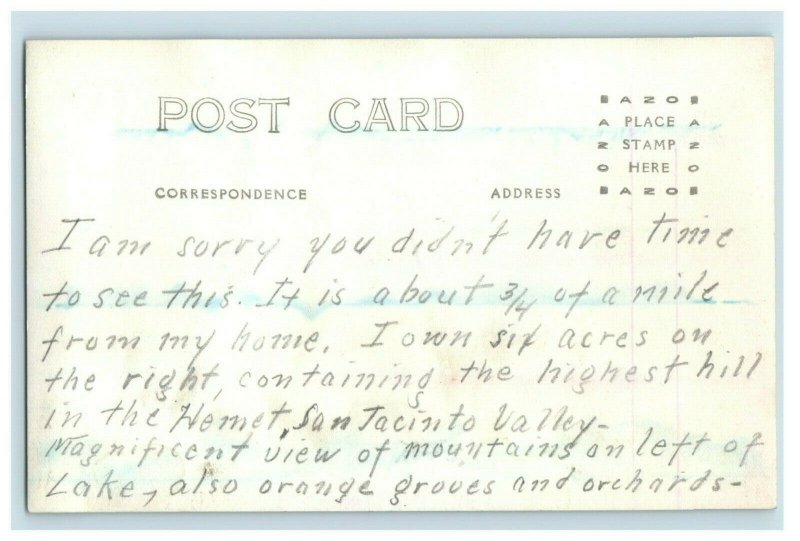 POST CARD
AZO
A PLACE A
Z STAMP Z
O HERE O
AZO
CORRESPONDENCE ADDRESS
I am sorry you didn't have time
to see this. It is about 3/4 of a mile
from my home. I own six acres on
the right, containing the highest hill
in the Hemet, San Jacinto Valley-
Magnificent view of mountains on left of
Lake, also orange groves and orchards-